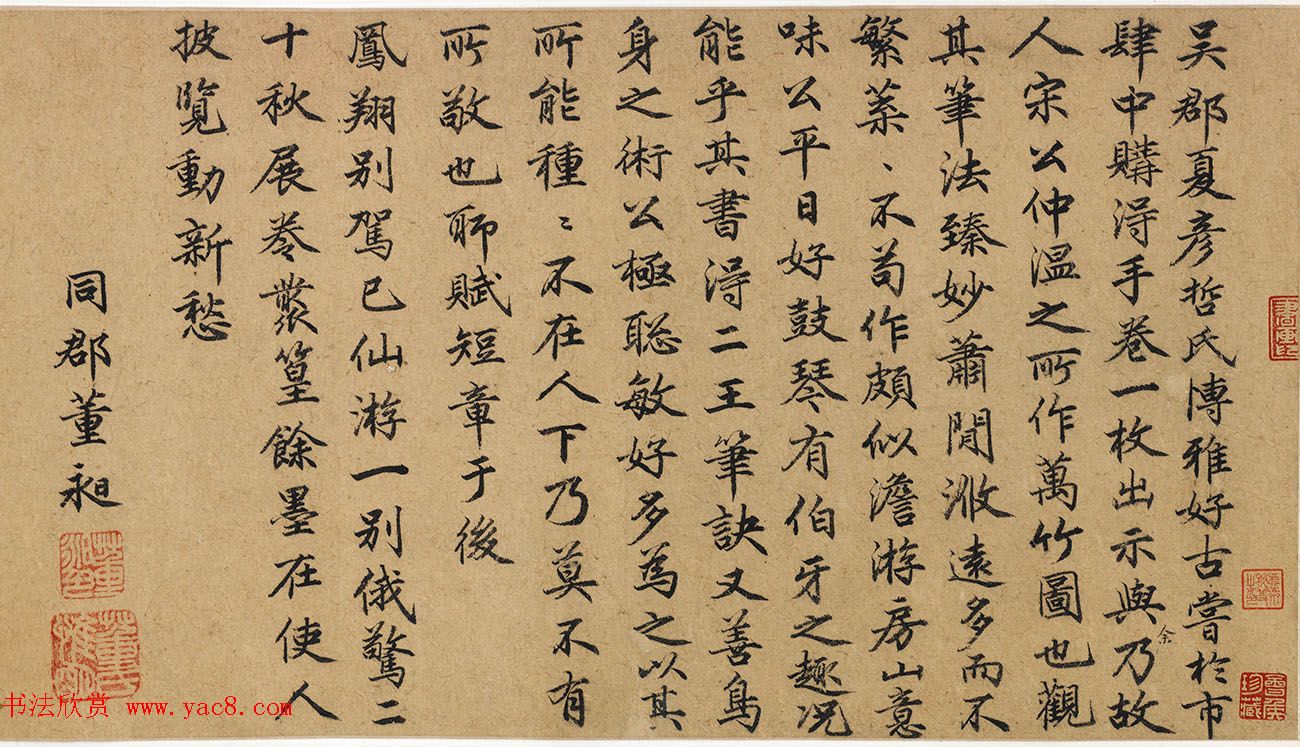 吴郡夏彦哲氏博雅好古嘗於市
肆中購得手卷一枚出示與余乃故
人宋公仲温之所作萬竹圖也觀
其筆法臻妙蕭閒澹遠多而不
繁葉〻不苟作頗似澹游房山意
味公平日好鼓琴有伯牙之趣况
能乎其書得二王筆訣又善鳥
身之術公極聪敏好多為之以其
所能種〻不在人下乃莫不有
所敬也聊賦短章于後
鳳翔别駕已仙游一别俄驚二
十秋展卷叢篁餘墨在使人
披覽動新愁
同郡董昶
珍藏
书法欣赏 www.yac8.com